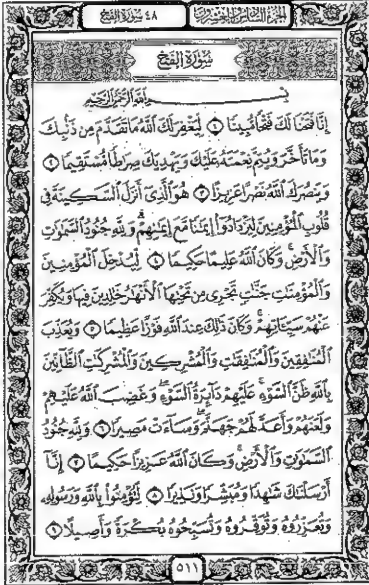 الجزء السادس والعشرون
٤٨ سورة الفتح
سورة الفتح
بسم الله الرحمن الرحيم
إِنَّا فَتَحْنَا لَكَ فَتْحًا مُّبِينًا ١ لِّيَغْفِرَ لَكَ اللَّهُ مَا تَقَدَّمَ مِن ذَنۢبِكَ
وَمَا تَأَخَّرَ وَيُتِمَّ نِعْمَتَهُۥ عَلَيْكَ وَيَهْدِيَكَ صِرَٰطًا مُّسْتَقِيمًا ٢
وَيَنصُرَكَ اللَّهُ نَصْرًا عَزِيزًا ٣ هُوَ الَّذِىٓ أَنزَلَ السَّكِينَةَ فِى
قُلُوبِ الْمُؤْمِنِينَ لِيَزْدَادُوٓا۟ إِيمَٰنًا مَّعَ إِيمَٰنِهِمْ ۗ وَلِلَّهِ جُنُودُ السَّمَٰوَٰتِ
وَالْأَرْضِ ۚ وَكَانَ اللَّهُ عَلِيمًا حَكِيمًا ٤ لِّيُدْخِلَ الْمُؤْمِنِينَ
وَالْمُؤْمِنَٰتِ جَنَّٰتٍ تَجْرِى مِن تَحْتِهَا الْأَنْهَٰرُ خَٰلِدِينَ فِيهَا وَيُكَفِّرَ
عَنْهُمْ سَيِّـَٔاتِهِمْ ۚ وَكَانَ ذَٰلِكَ عِندَ اللَّهِ فَوْزًا عَظِيمًا ٥ وَيُعَذِّبَ
الْمُنَٰفِقِينَ وَالْمُنَٰفِقَٰتِ وَالْمُشْرِكِينَ وَالْمُشْرِكَٰتِ الظَّآنِّينَ
بِاللَّهِ ظَنَّ السَّوْءِ ۚ عَلَيْهِمْ دَآئِرَةُ السَّوْءِ ۖ وَغَضِبَ اللَّهُ عَلَيْهِمْ
وَلَعَنَهُمْ وَأَعَدَّ لَهُمْ جَهَنَّمَ ۖ وَسَآءَتْ مَصِيرًا ٦ وَلِلَّهِ جُنُودُ
السَّمَٰوَٰتِ وَالْأَرْضِ ۚ وَكَانَ اللَّهُ عَزِيزًا حَكِيمًا ٧ إِنَّآ
أَرْسَلْنَٰكَ شَٰهِدًا وَمُبَشِّرًا وَنَذِيرًا ٨ لِّتُؤْمِنُوا۟ بِاللَّهِ وَرَسُولِهِۦ
وَتُعَزِّرُوهُ وَتُوَقِّرُوهُ وَتُسَبِّحُوهُ بُكْرَةً وَأَصِيلًا ٩
٥١١